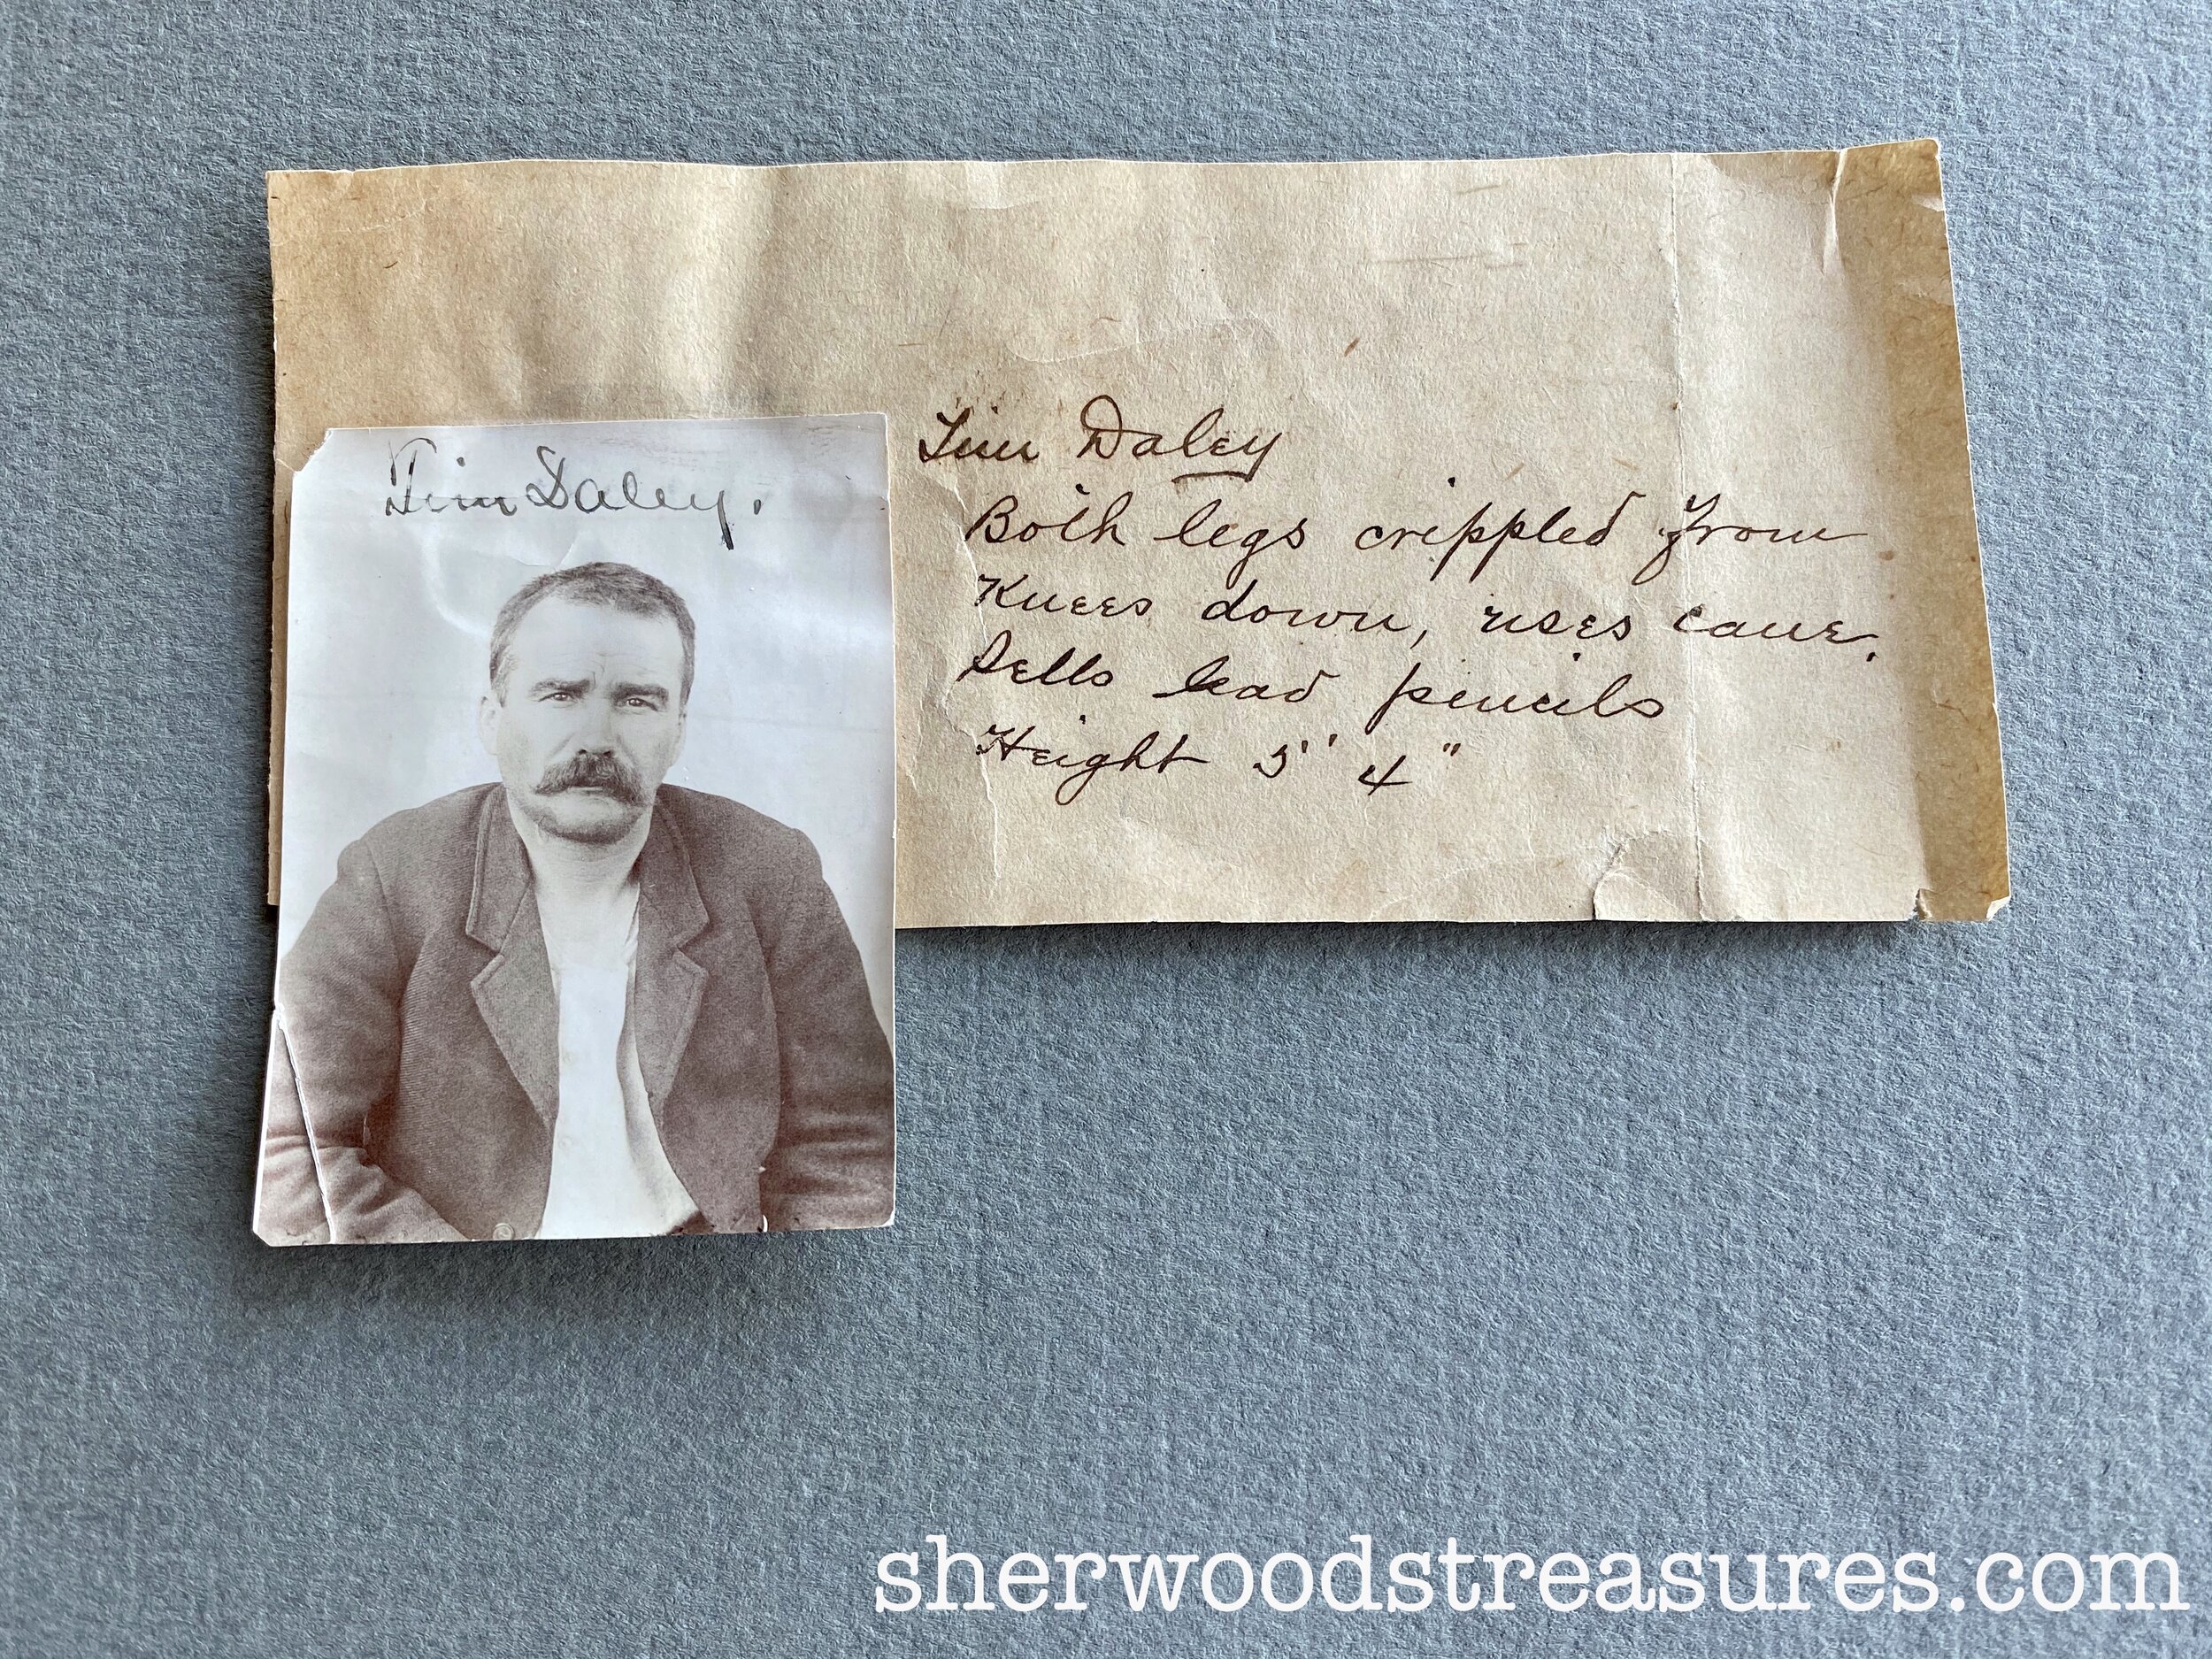 Tim Daley.
Tim Daley
Both legs crippled from
Knees down, uses cane.
Sells lead pencils
Height 5' 4"
sherwoodstreasures.com